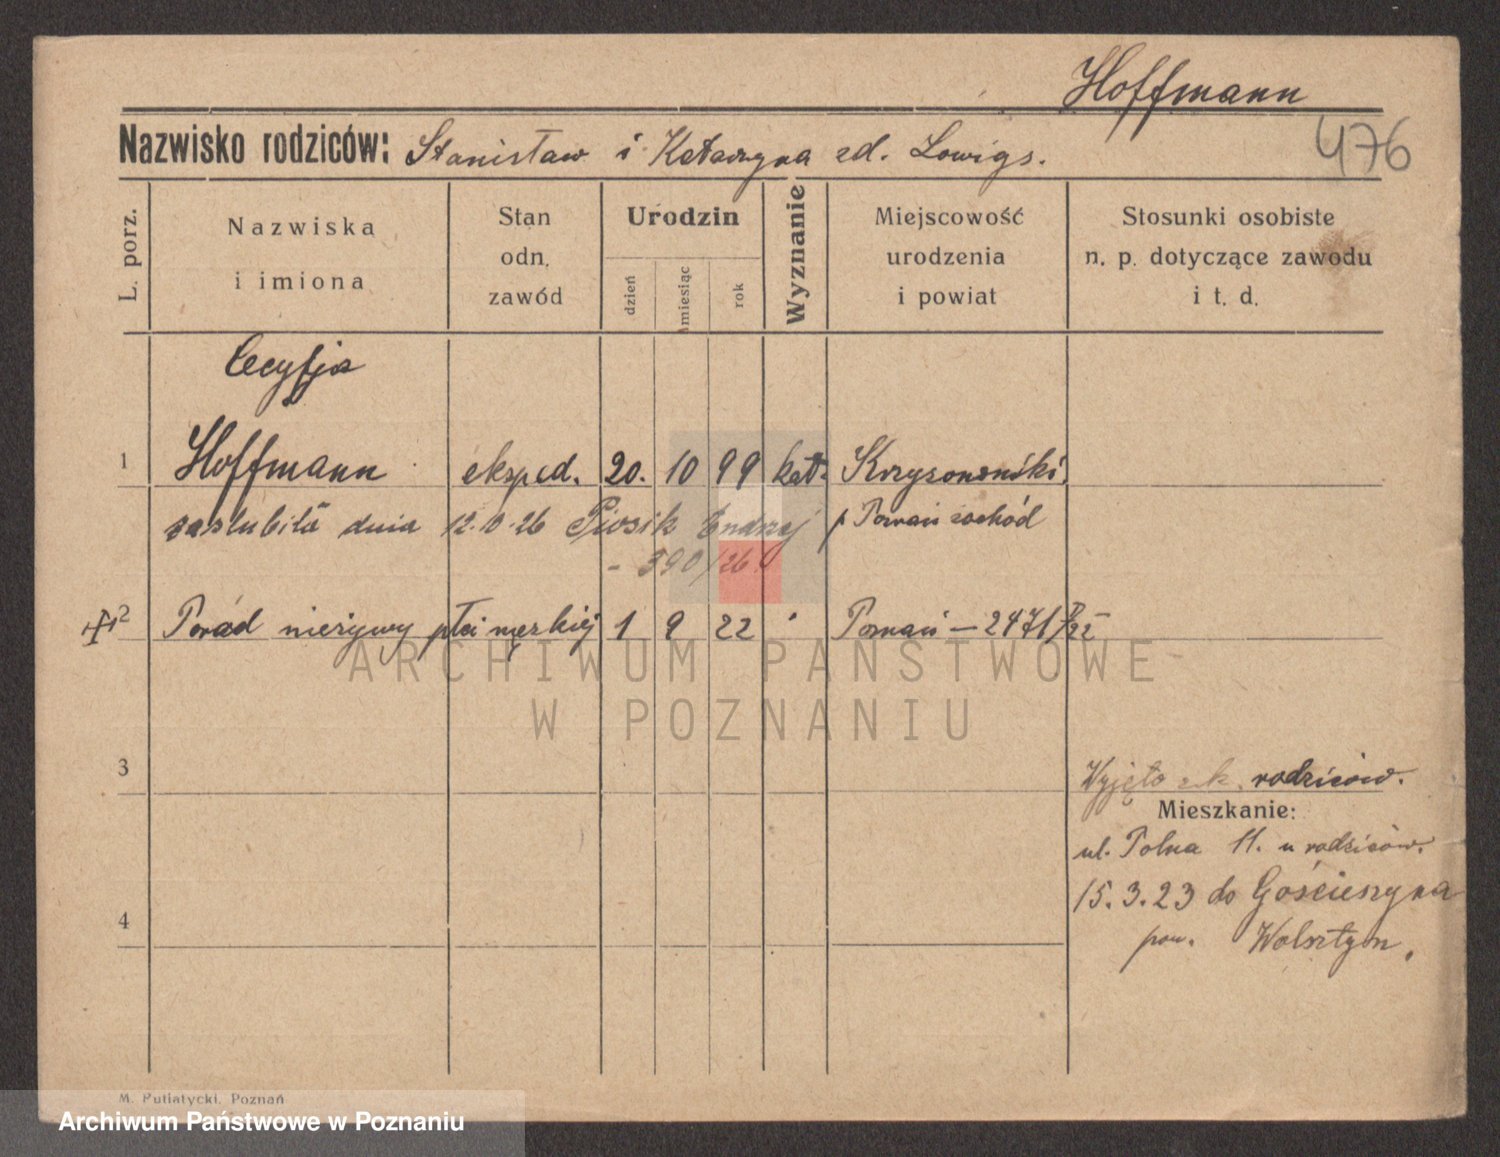 Hoffmann
476
Nazwisko rodziców: Stanisław i Katarzyna zd. Lowigs.
L. porz.
Nazwiska
i imiona
Stan
odn.
zawód
Urodzin
dzień
miesiąc
rok
Wyznanie
Miejscowość
urodzenia
i powiat
Stosunki osobiste
n. p. dotyczące zawodu
i t. d.
Cecylja
1 Hoffmann eksped. 20. 10 99 kat.
zaślubiła dnia 12.8.26 Piosik p Poznań zachód
- 390/26
2 Poród nieżywy płci męskiej 1 9 22 Poznań - 2471/22
3
Wyjęto z k. rodziców.
Mieszkanie:
ul. Polna 11. u rodziców.
15.3.23 do Gościeszyna
4
pow. Wolsztyn.
ARCHIWUM PAŃSTWOWE
W POZNANIU
M. Putiatycki, Poznań
Archiwum Państwowe w Poznaniu